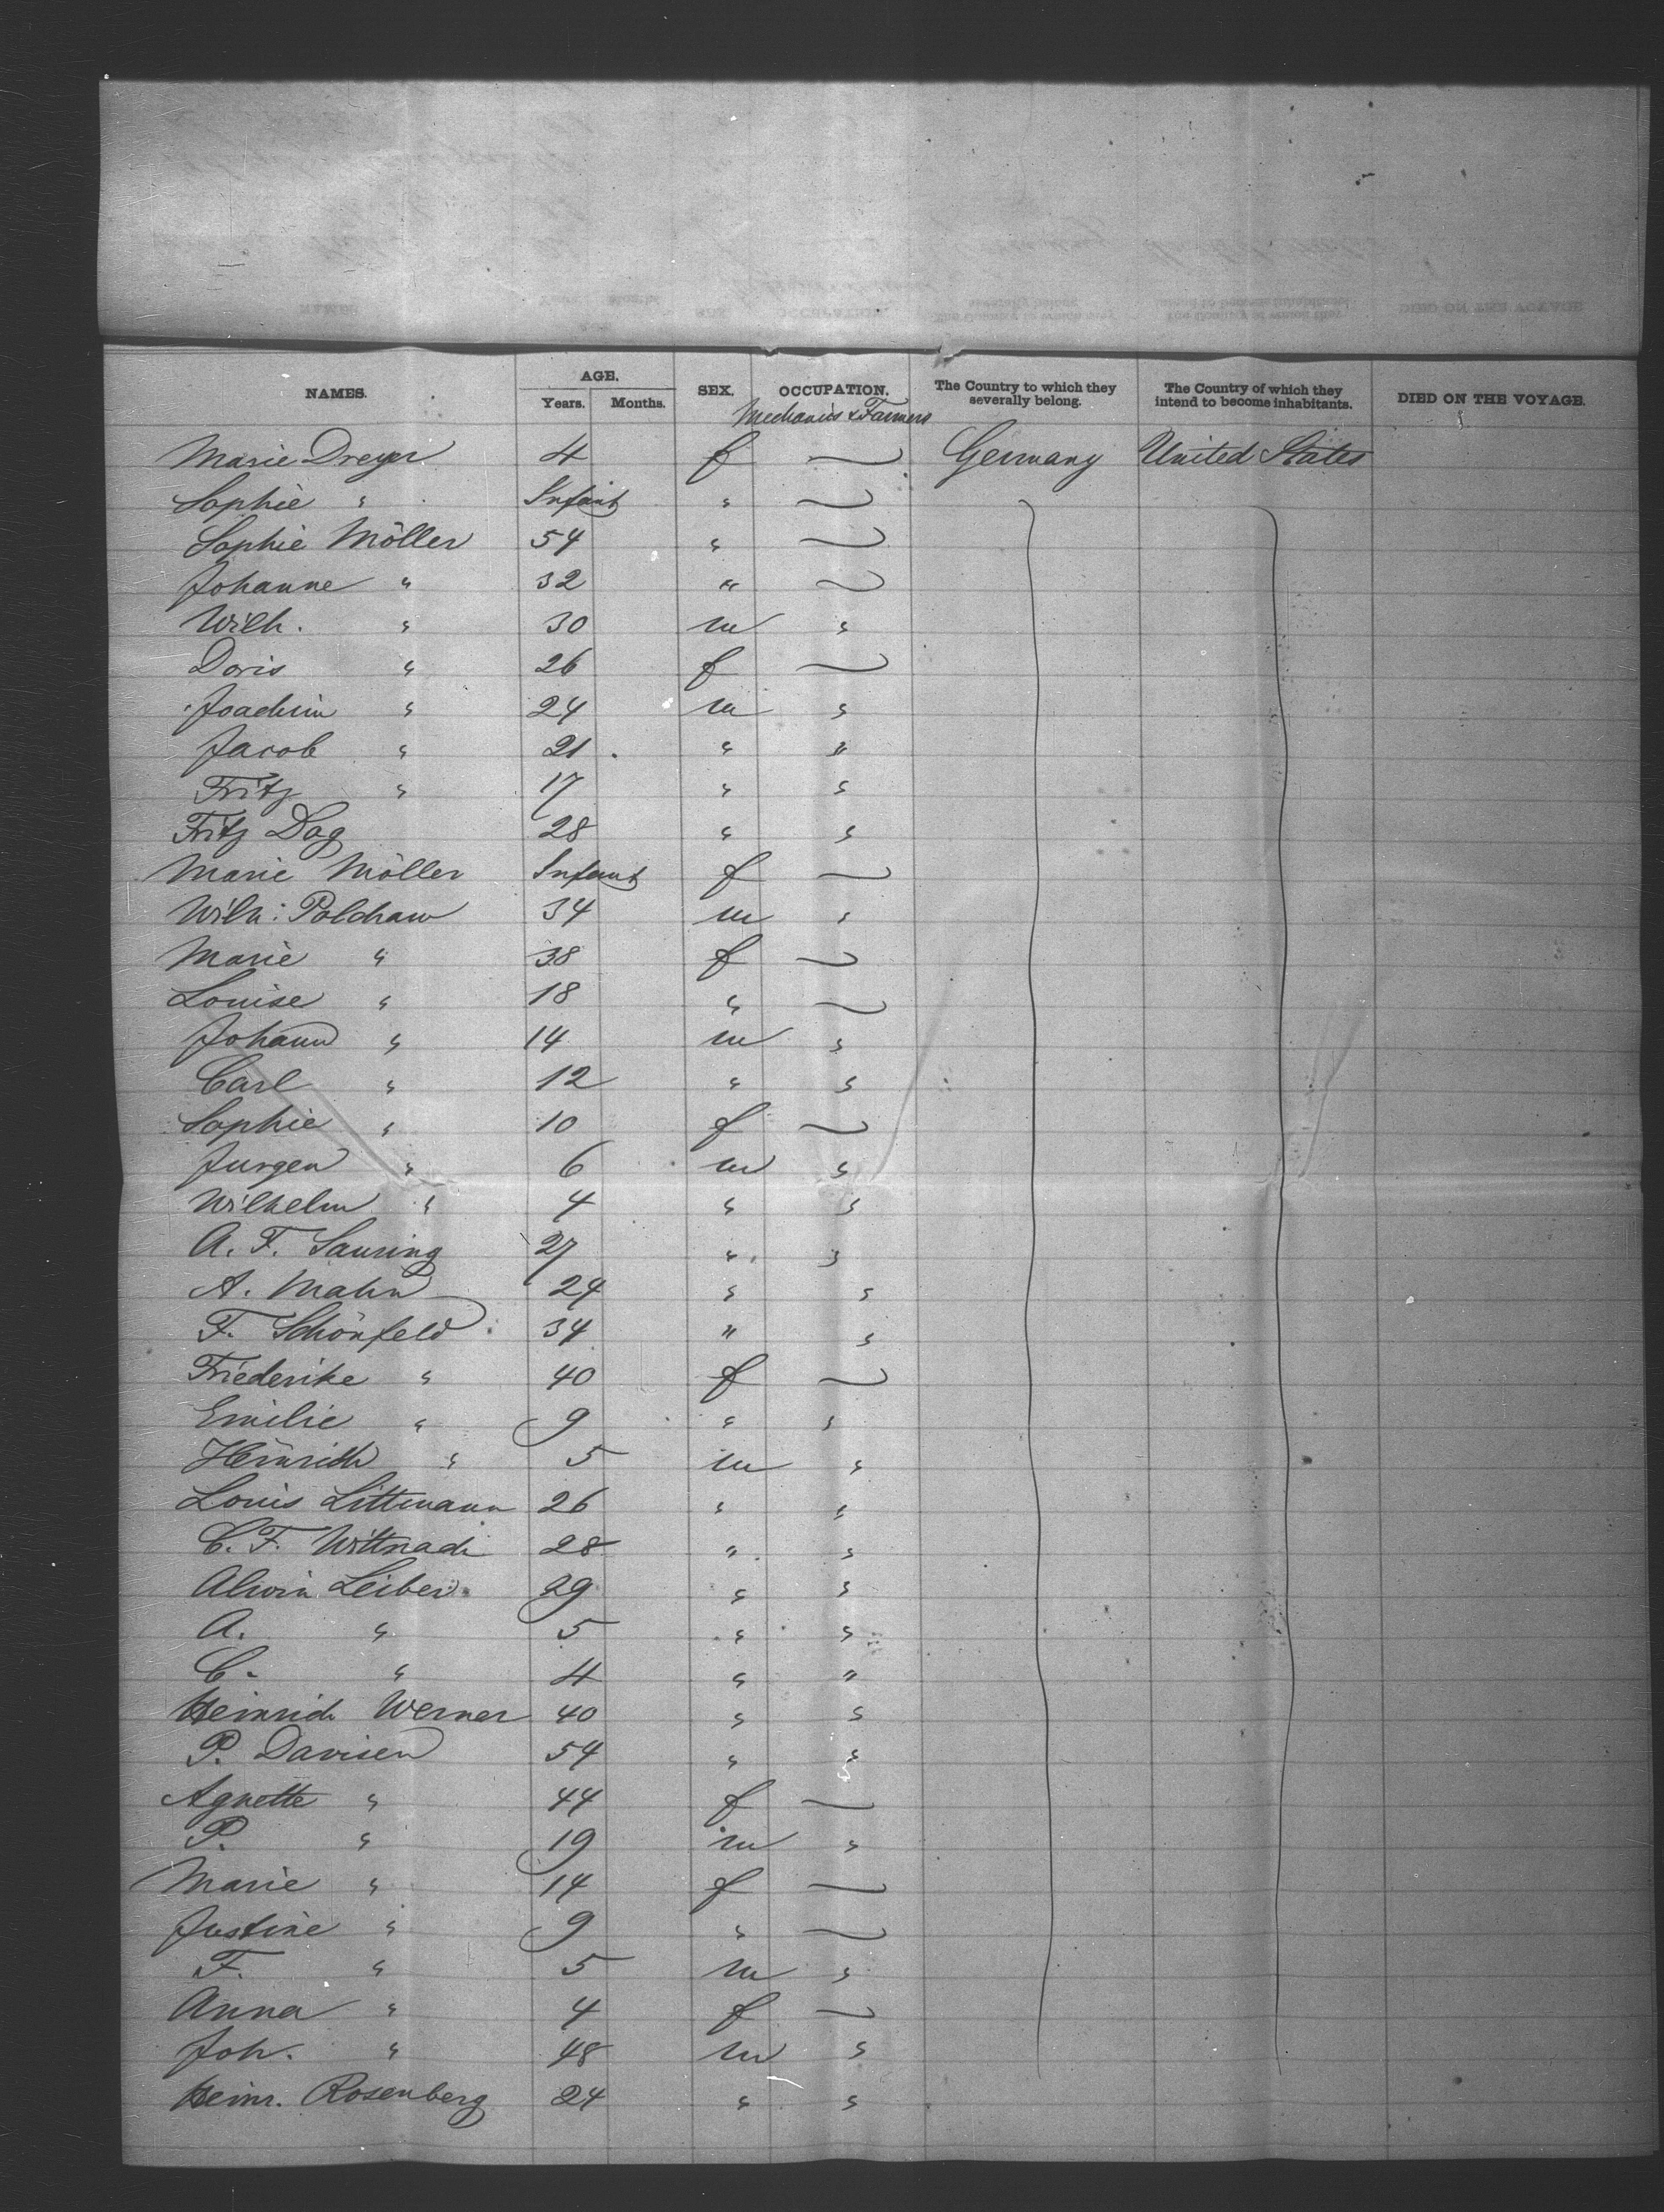 NAMES. AGE. SEX. OCCUPATION. The Country to which they severally belong. The Country of which they intend to become inhabitants. DIED ON THE VOYAGE.
Years. Months.
Mechanics & Farmers
Marie Dreyer 4 f — Germany United States
Sophie " Infant " —
Sophie Möller 54 " —
Johanne " 32 " —
Wilh. " 30 m "
Doris " 26 f —
Joachim " 24 m "
Jacob " 21 " "
Fritz " 17 " "
Fritz Dog 28 " "
Marie Möller Infant f —
Wilh: Polchaw 34 m "
Marie " 38 f —
Louise " 18 " —
Johann " 14 m "
Carl " 12 " "
Sophie " 10 f —
Jurgen " 6 m "
Wilhelm " 4 " "
A. F. Sauring 27 " "
A. Mahn 24 " "
F. Schönfeld 34 " "
Friederike " 40 f —
Emilie " 9 " "
Heinrich " 5 m "
Louis Littmann 26 " "
C. F. 28 " "
Alwin Leiber 29 " "
A. " 5 " "
C. " 4 " "
Heinrich Werner 40 " "
P. Davisen 54 " "
Agnette " 44 f —
P. " 19 m "
Marie " 14 f —
Justine " 9 " —
F. " 5 m "
Anna " 4 f —
Joh. " 48 m "
Heinr. Rosenberg 24 " "